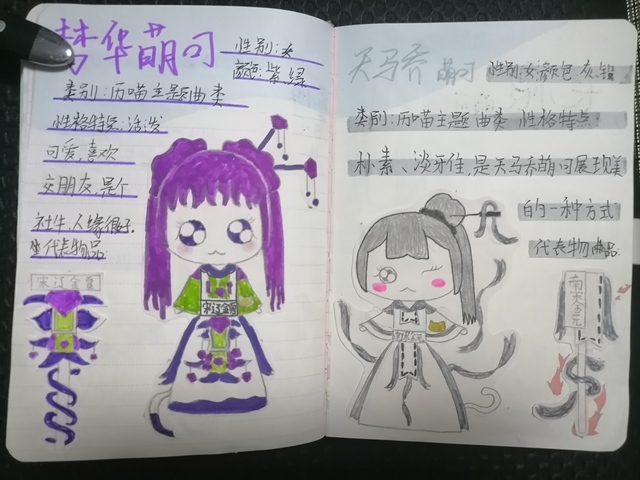 梦华萌可
性别:女
颜色:紫绿
类别:历喵主题曲类
性格特点:活泼
可爱,喜欢
交朋友,是个
社牛,人缘很好.
代表物品
宋辽金夏
天马乔萌可
性别:女 颜色 灰、银
类别:历喵主题曲类 性格特点:
朴素、淡雅,是天马乔萌可展现美
的一种方式
代表物品